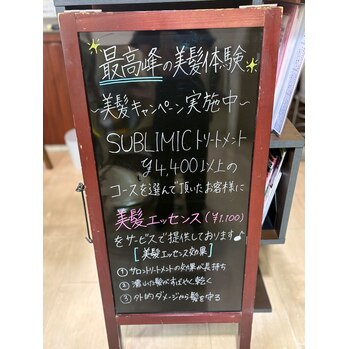 最高峰の美髪体験
~美髪キャンペーン実施中~
SUBLIMICトリートメント
¥4,400以上の
コースを選んで頂いたお客様に
美髪エッセンス(¥1,100)
をサービスで提供しております♪
[美髪エッセンス効果]
①サロントリートメントの効果が長持ち
②濡れた髪がすばやく乾く
③外的ダメージから髪を守る